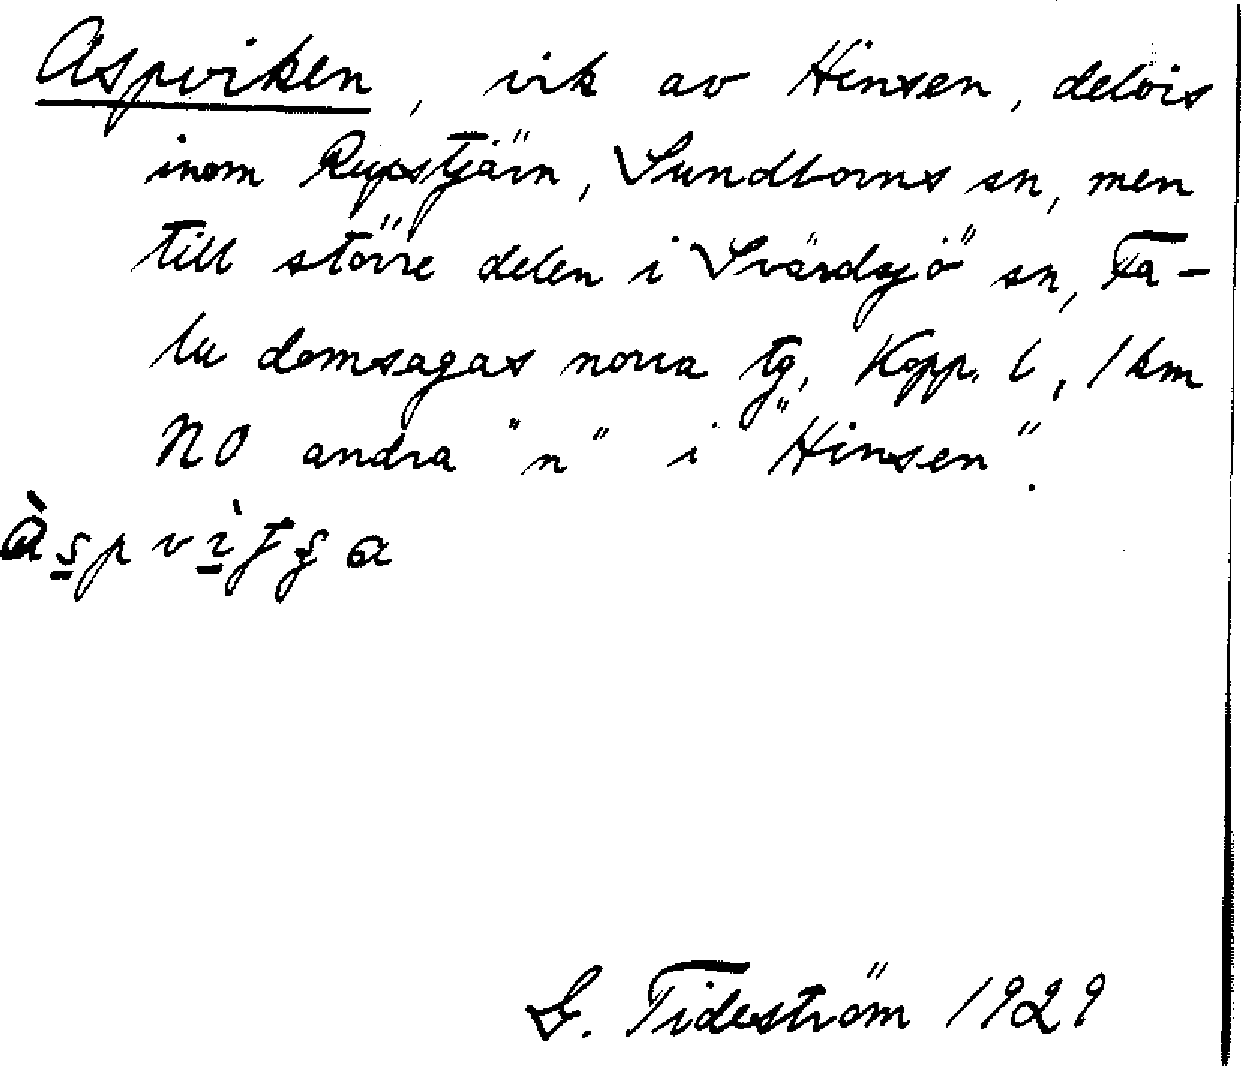 Aspviken, vik av Hinsen, delvis
inom Rupstjärn, Sundborns sn, men
till större delen i Svärdsjö sn, Fa-
lu domsagas norra tg, Kopp. l, 1 km
NO andra "n" i "Hinsen".
G. Tideström 1929